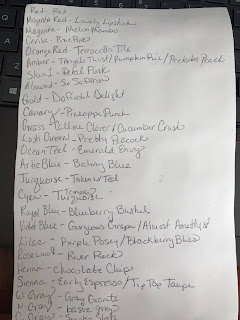 Red - Red
Magenta Red - Lovely Lipstick
Magenta - Melon Mambo
Cerise - Pine
Orange Red - Terracotta Tile
Amber - Tangelo Twist/Pumpkin Pie/Peekaboo Peach
Skin 1 - Petal Pink
Almond - So Saffron
Gold - Daffodil Delight
Canary - Pineapple Punch
Grass - Clover/Cucumber Crush
Lush Green - Pretty Peacock
Ocean Teal - Emerald Envy
Artic Blue - Balmy Blue
Turquoise - Teal
Cyan - Tempting Turquoise
Royal Blue - Blueberry Bushel
Violet Blue - Gorgeous Grape/Almost Amethyst
Lilac - Purple Posy/Blackberry Bliss
Rosewood - River Rock
Henna - Chocolate Chip
Sienna - Early Espresso/Tip Top Taupe
W Gray - Gray Granite
N Gray - basic gray
C Gray - Smoky Slate